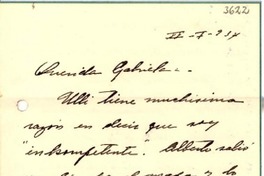 3622
Querida Gabriela..
Ulli tiene muchisima
razón en decir que soy
"inkompetente". Alberto salió